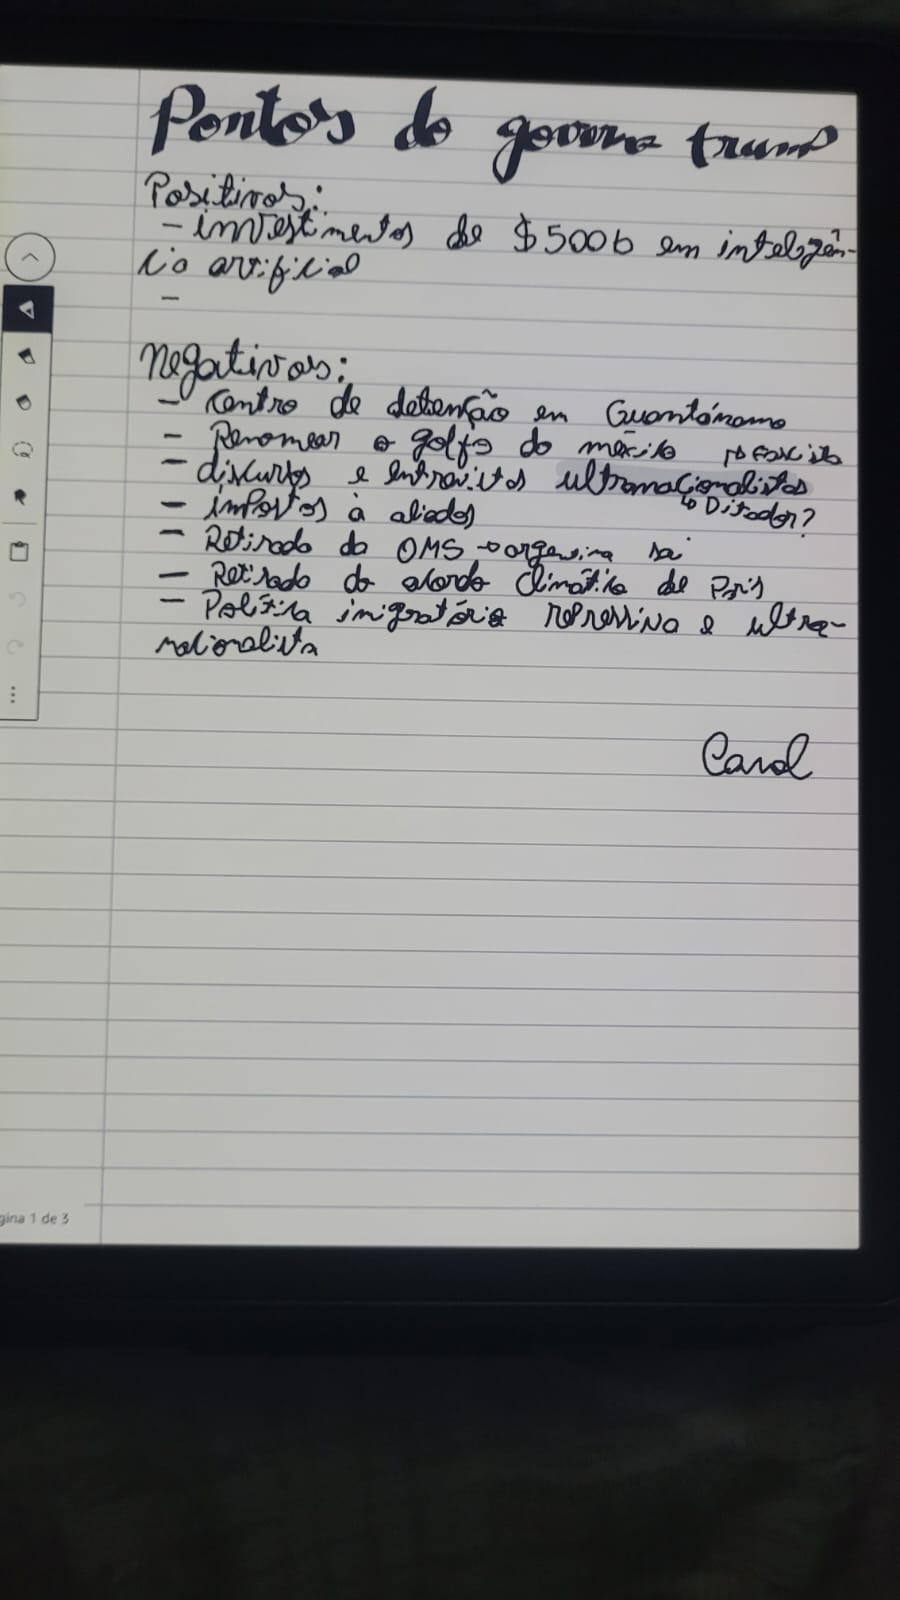 Pontos do governo trump
Positivos:
- investimentos de $500b em inteligên-
cia artificial
-
Negativos:
- Centro de detenção em Guantánamo
- Renomear o golfo do méxico fascista
- discursos e entrevistas ultranacionalistas
↳ Ditador?
- impostos à aliados
- Retirada da OMS → argentina sai
- Retirada do acordo climático de Paris
- Política imigratória repressiva e ultra-
nacionalista
Carol
gina 1 de 3